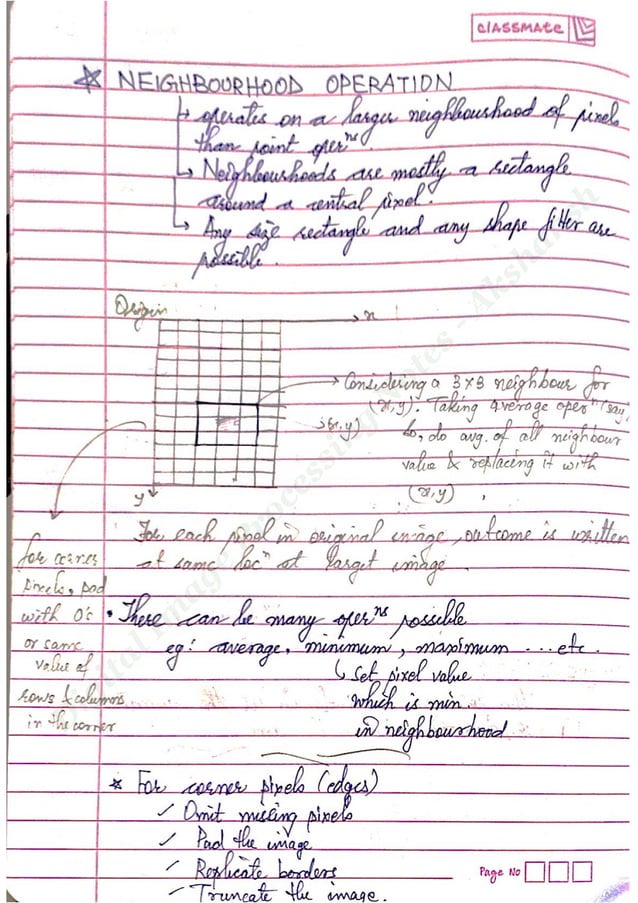 classmate
☆ NEIGHBOURHOOD OPERATION
↳ operates on a larger neighbourhood of pixels
than point oper^ns
↳ Neighbourhoods are mostly a rectangle
around a central pixel.
↳ Any size rectangle and any shape filter are
possible.
Origin
x
→ Considering a 3×3 neighbour for
(x,y). Taking average oper^n (say)
(x,y)
so, do avg. of all neighbour
value & replacing it with
(x,y).
y
For each pixel in original image, outcome is written
at same loc^n at target image.
for corner
pixels, pad
with 0's
or same
value of
rows & columns
in the corner
• There can be many oper^ns possible
eg: average, minimum, maximum ... etc.
↳ set pixel value
which is min.
in neighbourhood
* For corner pixels (edges)
✓ Omit missing pixels
✓ Pad the image
✓ Replicate borders
✓ Truncate the image.
Page No
Digital Image Processing Notes - Akshansh